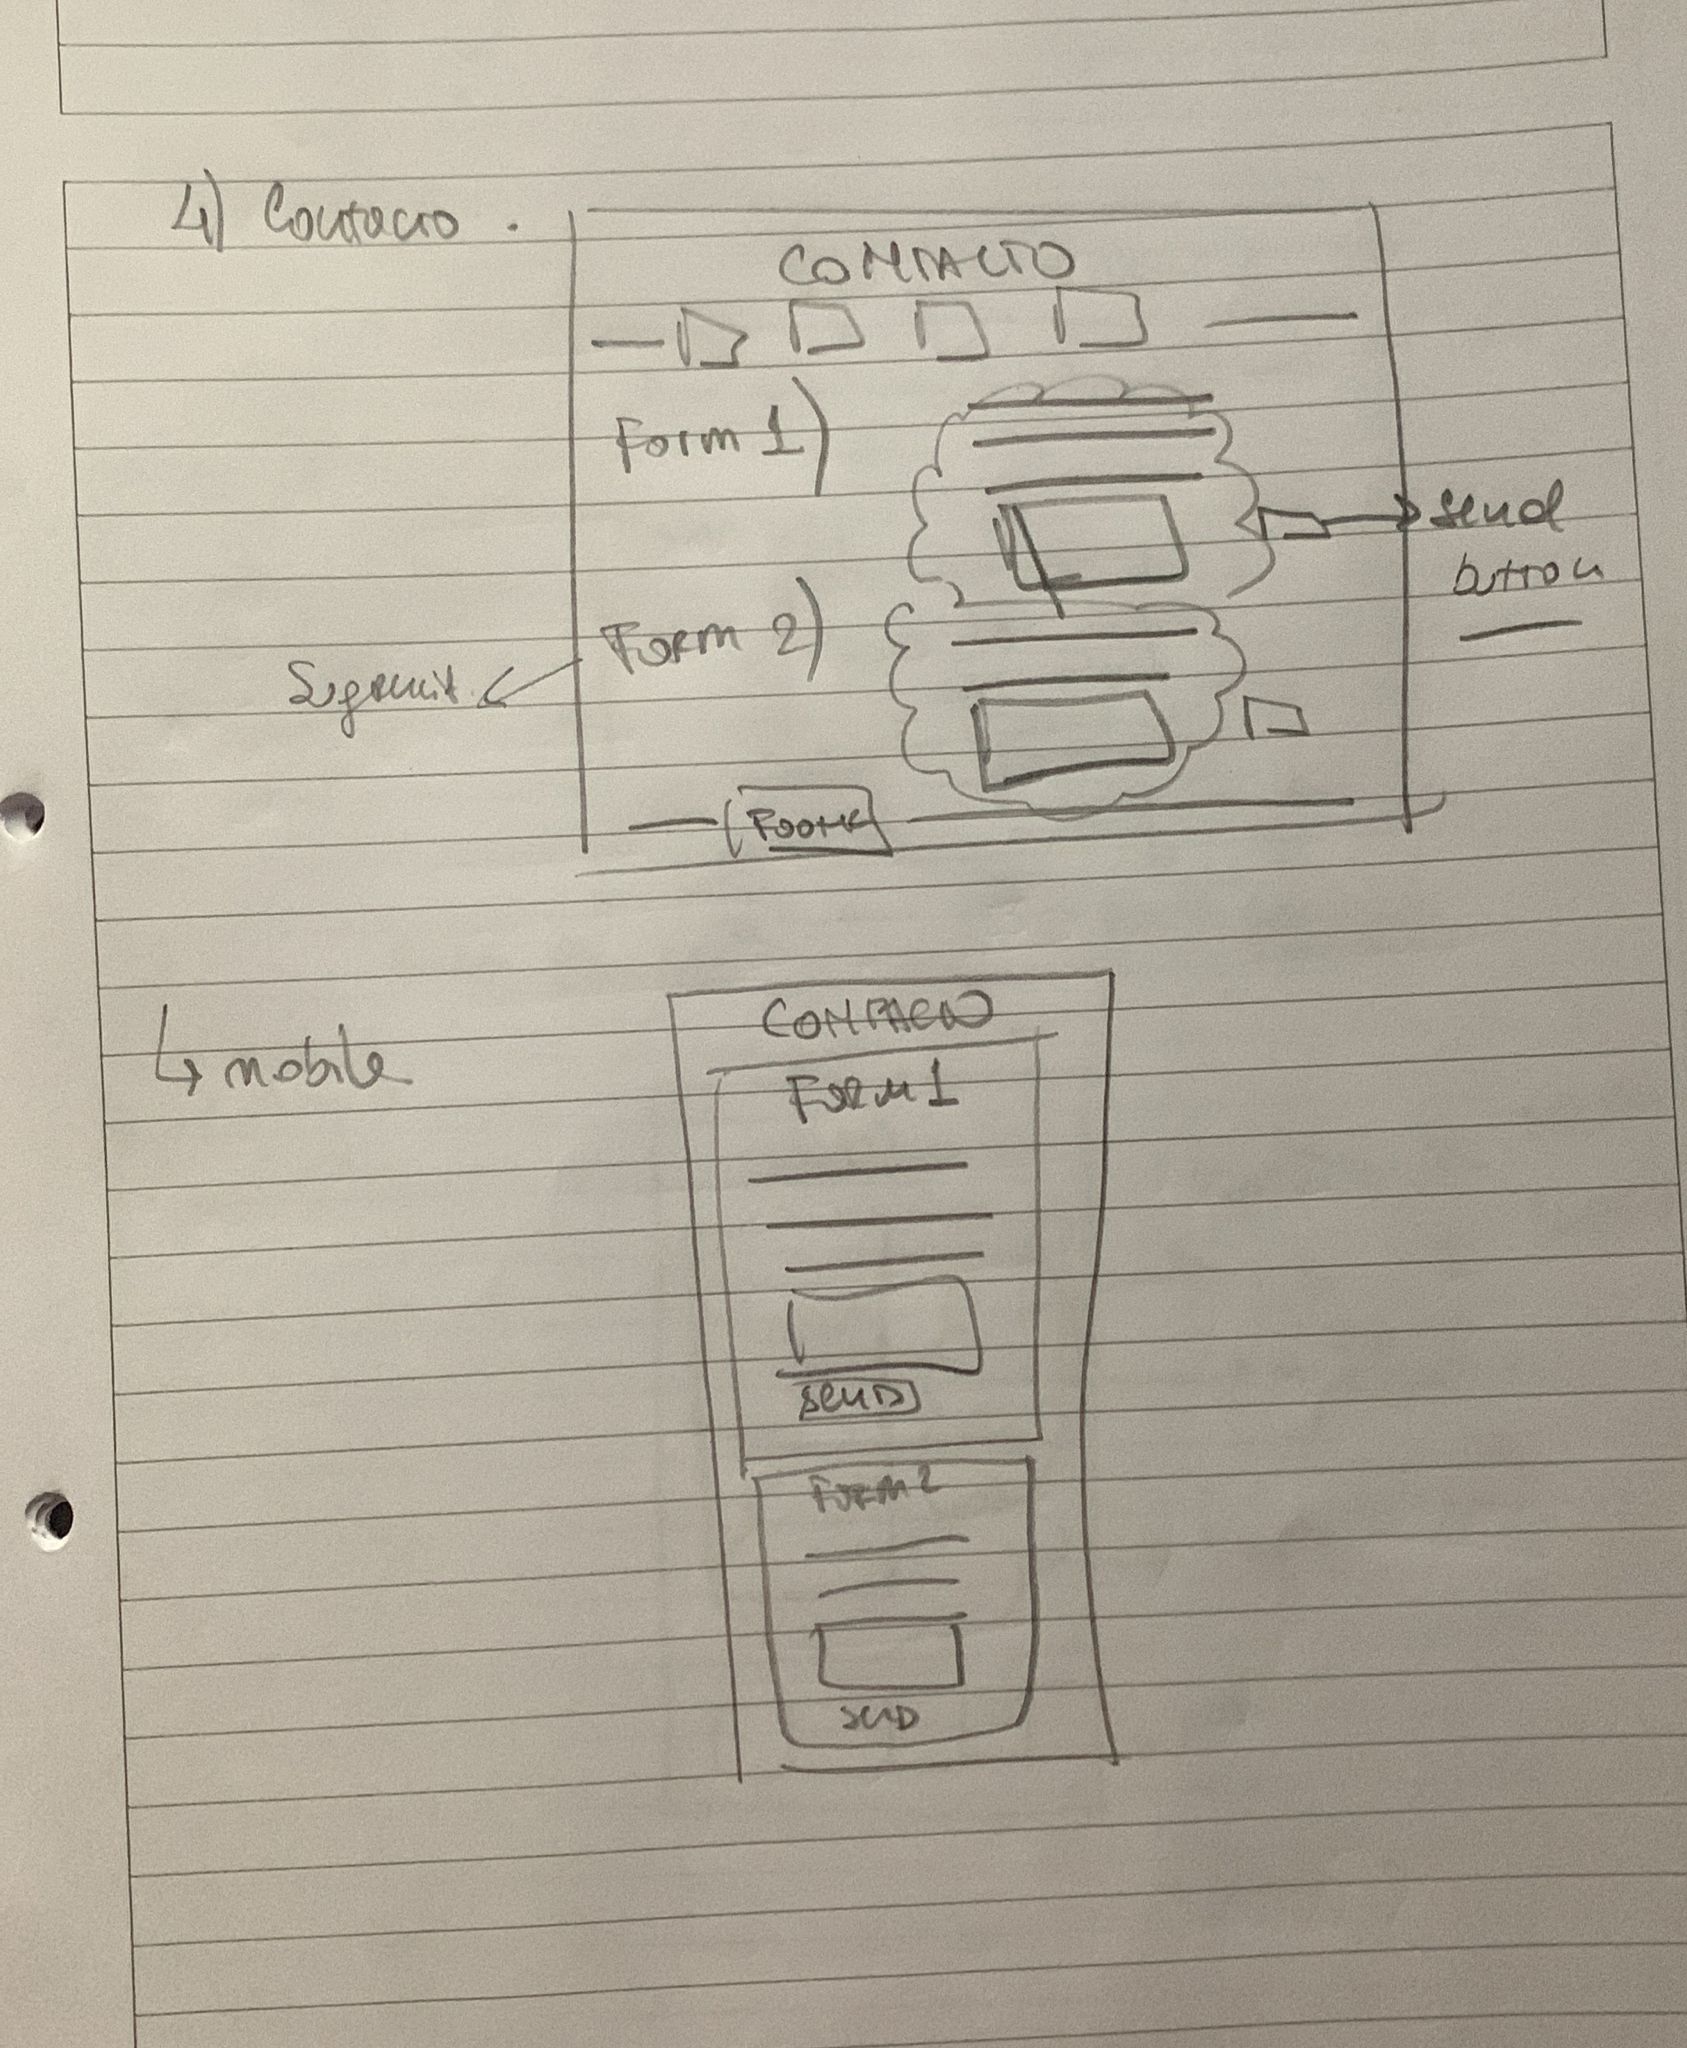 4) Contacto.
CONTACTO
Form 1)
send
button
Form 2)
Footer
↳ mobile
CONTACTO
FORM 1
SEND
FORM 2
SEND